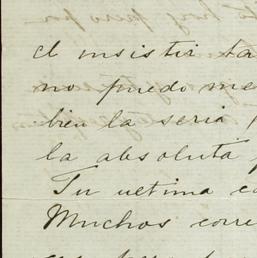 el insistir ta
no puedo me
bien la seria
la absoluta
Tu ultima ca
Muchos corre